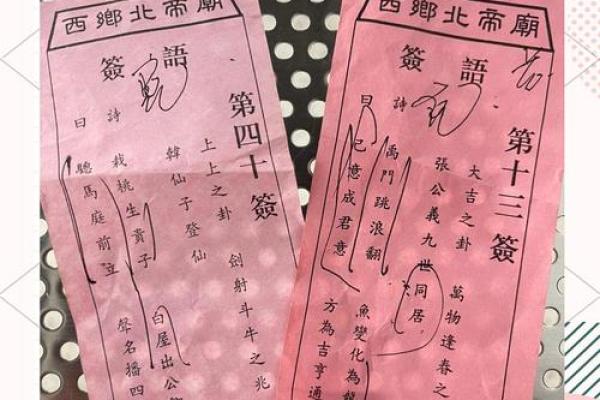 西鄉北帝廟
簽語
第四十簽
上上之卦 劍射斗牛之兆
韓仙子登仙
詩曰
栽桃生貴子 白屋出公
聰馬庭前立 聲名播四
西鄉北帝廟
簽語
第十三簽
大吉之卦 萬物逢春之
張公義九世同居
詩曰
禹門跳浪翻 魚變化為龍
己意成君意 方為吉亨通